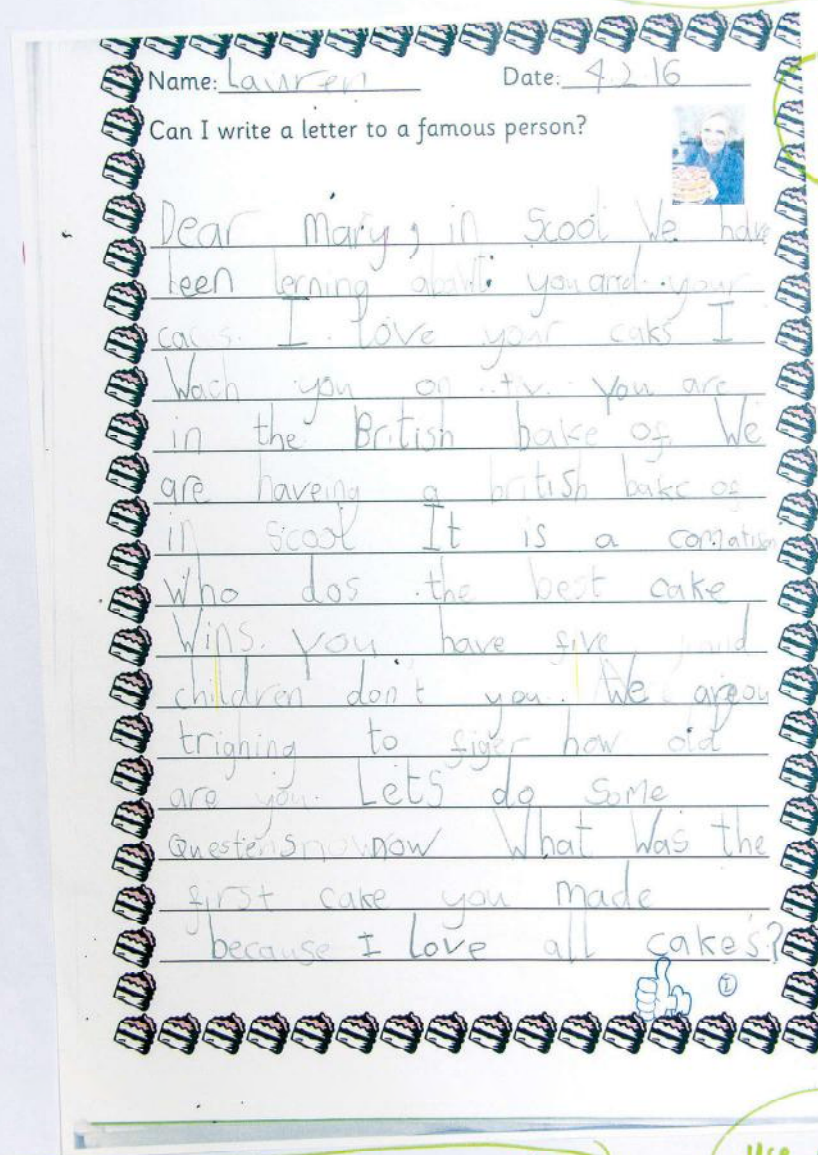 Name: Lauren Date: 4.2.16
Can I write a letter to a famous person?
Dear Mary, in Scool We have
been lerning abawt you and your
caces. I love your caks I
Wach you on tv. You are
in the British bake of We
are haveing a british bake of
in Scool It is a comatison
who dos the best cake
Wins. You have five
children don't you. We are
trighing to figer how old
are you. Lets do Some
Questens now What Was the
first cake you made
because I love all cake's?
I
Use